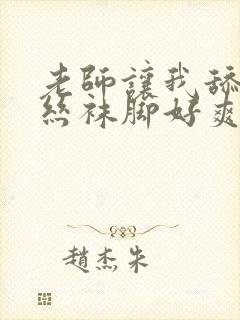 老師讓我舔
絲袜脚好爽
趙杰朱